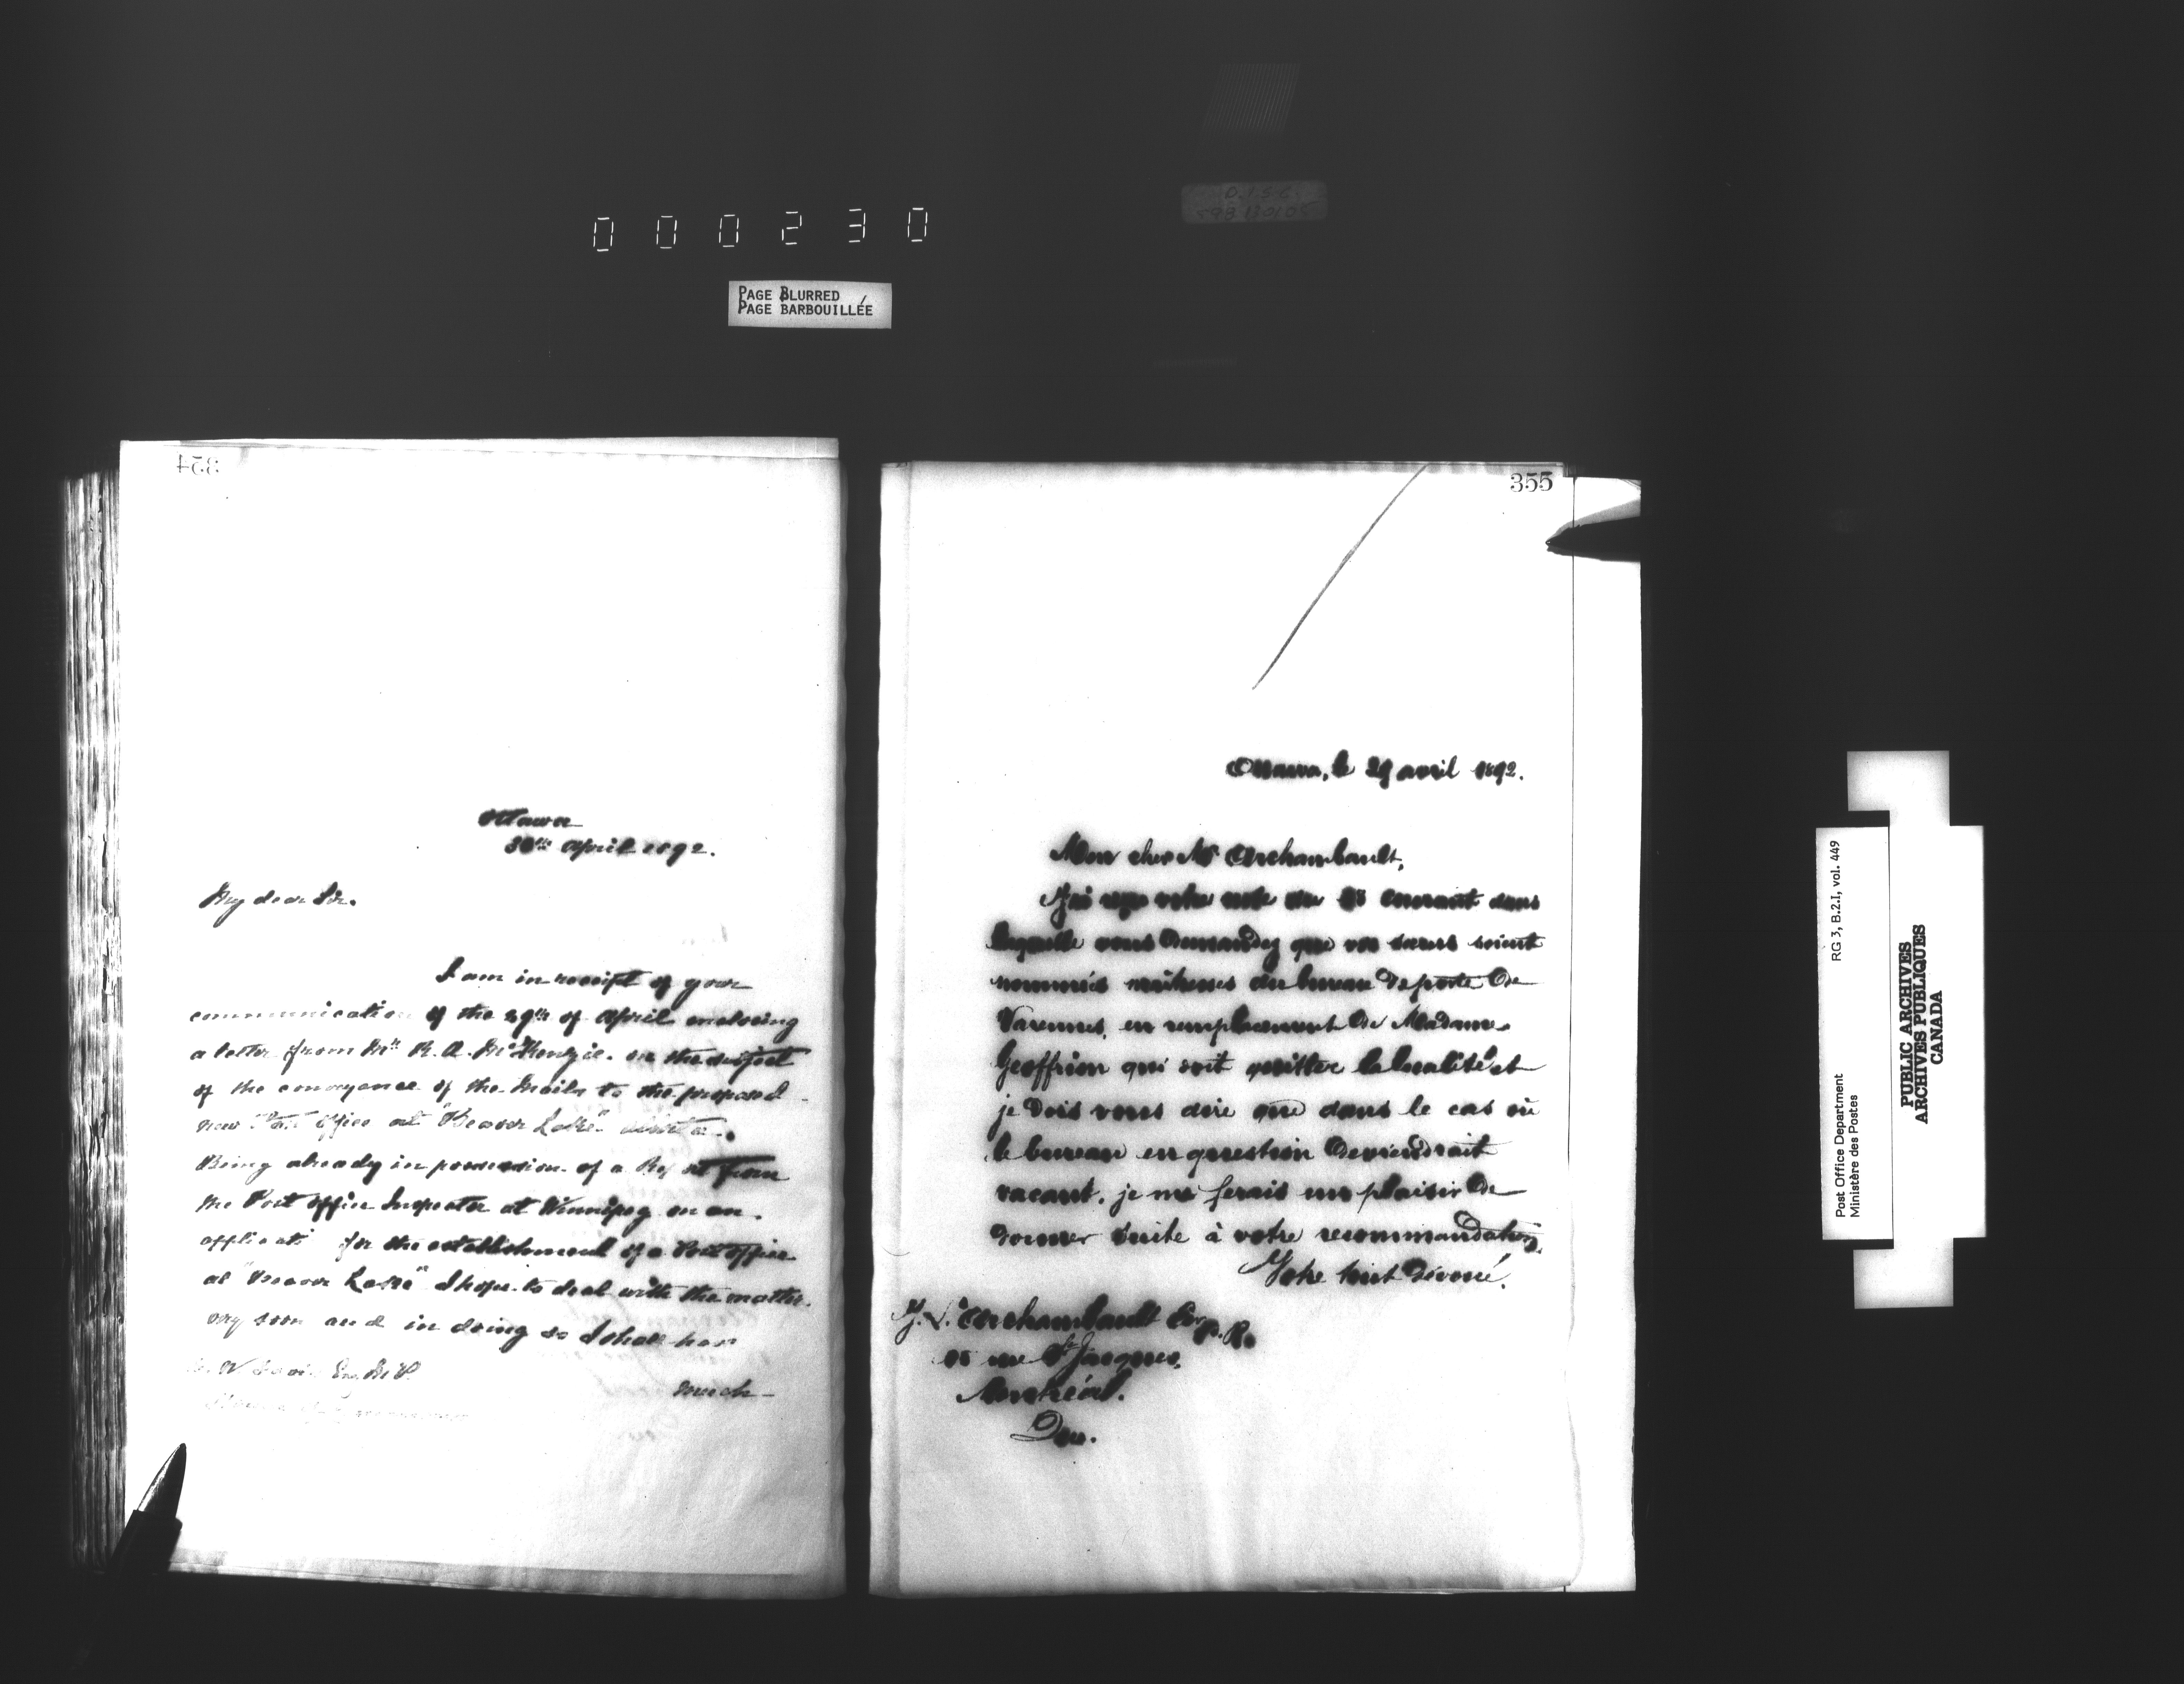 000230
D.I.S.C.
PAGE BLURRED
PAGE BARBOUILLÉE
354
Ottawa
30th April 1892.
My dear Sir.
I am in receipt of your
communication of the 29th of April enclosing
a letter from Mr R. A. McKenzie. on the subject
of the conveyance of the Mails to the proposed
new Post Office at "Beaver Lake" Alberta.
Being already in possession of a Report from
the Post Office Inspector at Winnipeg on an
applicati for the establishment of a Post Office
at "Beaver Lake" I hope to deal with the matter
very soon and in doing so I shall have
much
W. Davis Esq. M.P.
House of Commons
355
Ottawa, le 29 avril 1892.
Mon cher Mr Archambault,
J'ai reçu votre note du courant dans
laquelle vous demandez que vos sœurs soient
nommées maîtresses du bureau de poste de
Varennes, en remplacement de Madame
Geoffrion qui doit quitter la localité et
je dois vous dire que dans le cas où
le bureau en question deviendrait
vacant, je me ferais un plaisir de
donner suite à votre recommandation.
Votre tout dévoué.
Archambault Ecr C.R.
rue St Jacques,
Montréal.
Que.
Post Office Department
Ministère des Postes
RG 3, B.2.I, vol. 449
PUBLIC ARCHIVES
ARCHIVES PUBLIQUES
CANADA